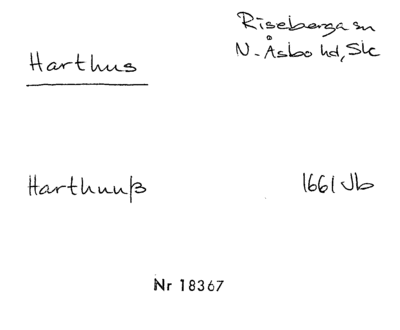 Riseberga sn
N. Åsbo hd, Slc
Harthus
Harthuuß 1661 Jb
Nr 18367